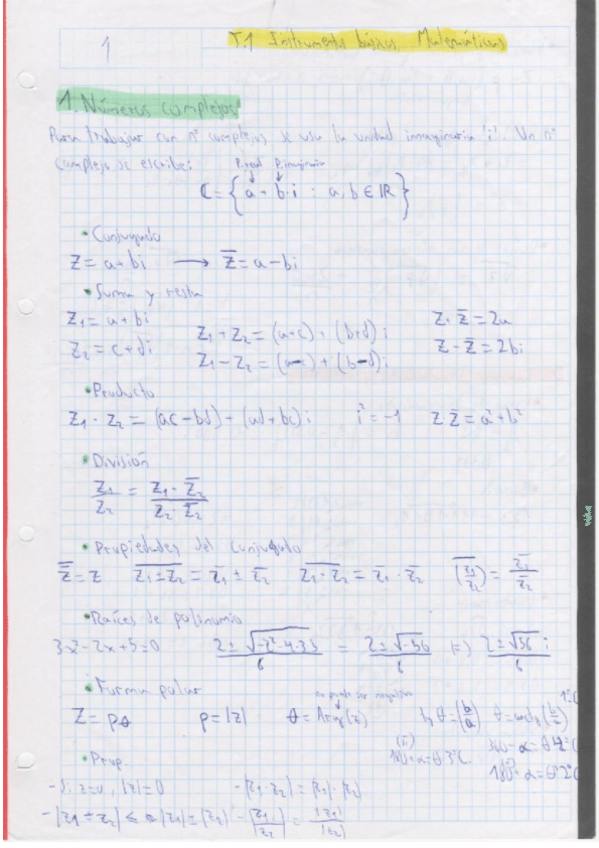 1
T.1 Instrumentos básicos Matemáticos
1. Números complejos
Para trabajar con nº complejos se usa la unidad imaginaria 'i'. Un nº
complejo se escribe:
P.real P.imaginaria
C = { a + b·i : a, b ∈ IR }
• Conjugado
Z = a + bi → Z̅ = a - bi
• Suma y resta
Z₁ = a + bi
Z₂ = c + di
Z₁ + Z₂ = (a+c) + (b+d) i
Z₁ - Z₂ = (a-c) + (b-d) i
Z + Z̅ = 2a
Z - Z̅ = 2bi
• Producto
Z₁ · Z₂ = (ac - bd) + (ad + bc) i i² = -1 Z·Z̅ = a² + b²
• División
Z₁/Z₂ = Z₁·Z̅₂ / Z₂·Z̅₂
• Propiedades del conjugado
Z̿ = Z \overline{Z₁ ± Z₂} = Z̅₁ ± Z̅₂ \overline{Z₁·Z₂} = Z̅₁ · Z̅₂ \overline{(Z₁/Z₂)} = Z̅₁/Z̅₂
• Raíces de polinomio
3x² - 2x + 5 = 0 2 ± √(-2²-4·3·5) / 6 = 2 ± √-56 / 6 => 2 ± √56 i / 6
• Forma polar
no puede ser negativo
Z = ρθ ρ = |z| θ = Arg(z) tg θ = (b/a) θ = arctg (b/a) 1ºC
180+α=θ 3ºC. 360-α=θ 4ºC
180-α=θ 2ºC
• Prop.
- Si z=0, |z|=0 - |z₁·z₂| = |z₁|·|z₂|
- |z₁ ± z₂| ≤ |z₁| ± |z₂| - |z₁/z₂| = |z₁|/|z₂|